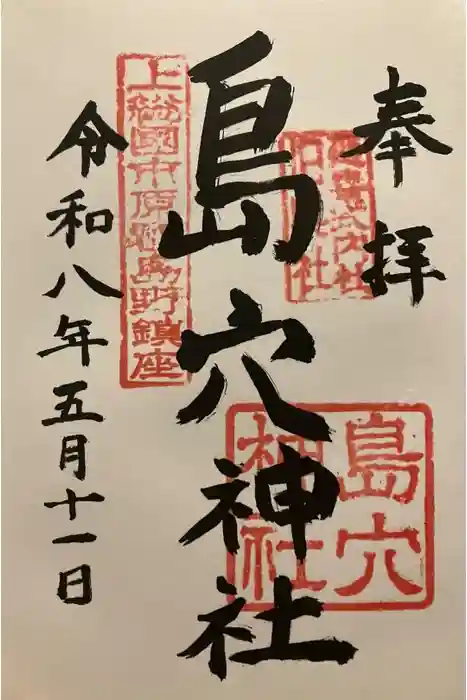 奉拝
島穴神社
島穴神社
上総國市原郡島野鎮座
令和八年五月十一日